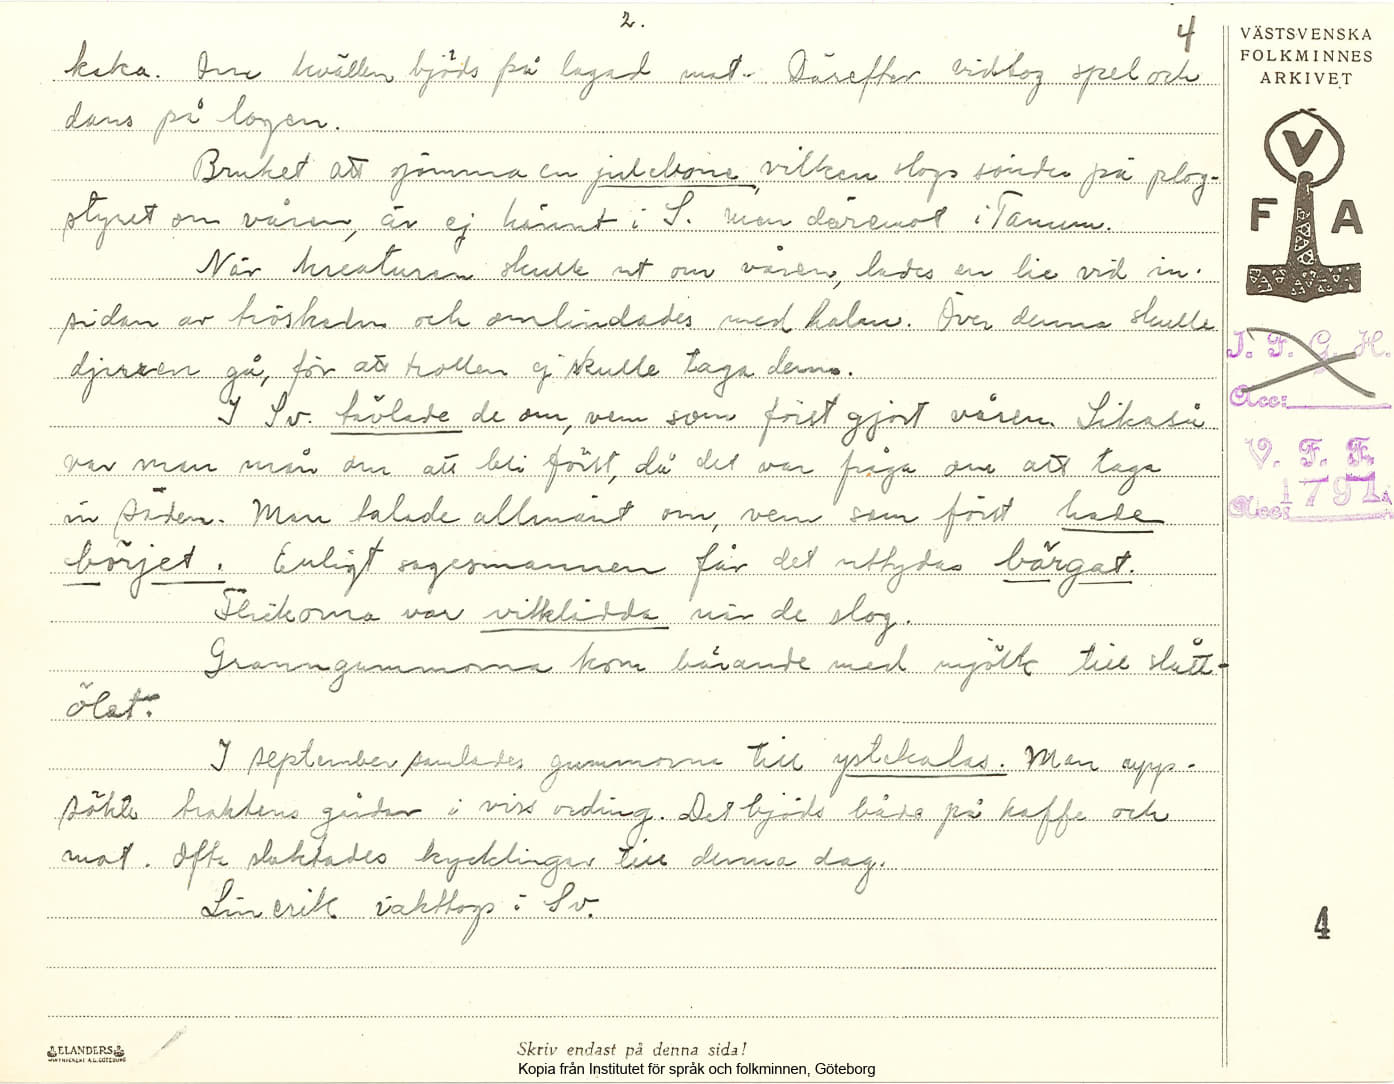 2.
4
kaka. Om kvällen bjöds på lagad mat. Därefter vidtog spel och
dans på logen.
Bruket att gömma en julebone, vilken slogs sönder på plog-
styret om våren, är ej kännt i S. men däremot i Tanum.
När kreaturen skulle ut om våren, lades en lie vid in-
sidan av tröskeln och omlindades med halm. Över denna skulle
djuren gå, för att trollen ej skulle taga dem.
I Sv. tävlade de om, vem som först gjort våren. Likaså
var man mån om att bli först, då det var fråga om att taga
in säden. Man talade allmänt om, vem som först hade
börjet. Enligt sagesmannen får det uttydas bärgat.
Flickorna var vitklädda när de slog.
Granngummorna kom bärande med mjölk till slått-
ölet.
I september samlades gummorna till ystekalas. Man upp-
sökte traktens gårdar i viss ordning. Det bjöds både på kaffe och
mat. Ofta slaktades kycklingar till denna dag.
Lin erik iakttogs i Sv.
VÄSTSVENSKA
FOLKMINNES
ARKIVET
V
F A
I. F. G. H.
Acc:
V. F. F.
Acc: 1791
4
ELANDERS
Skriv endast på denna sida!
Kopia från Institutet för språk och folkminnen, Göteborg